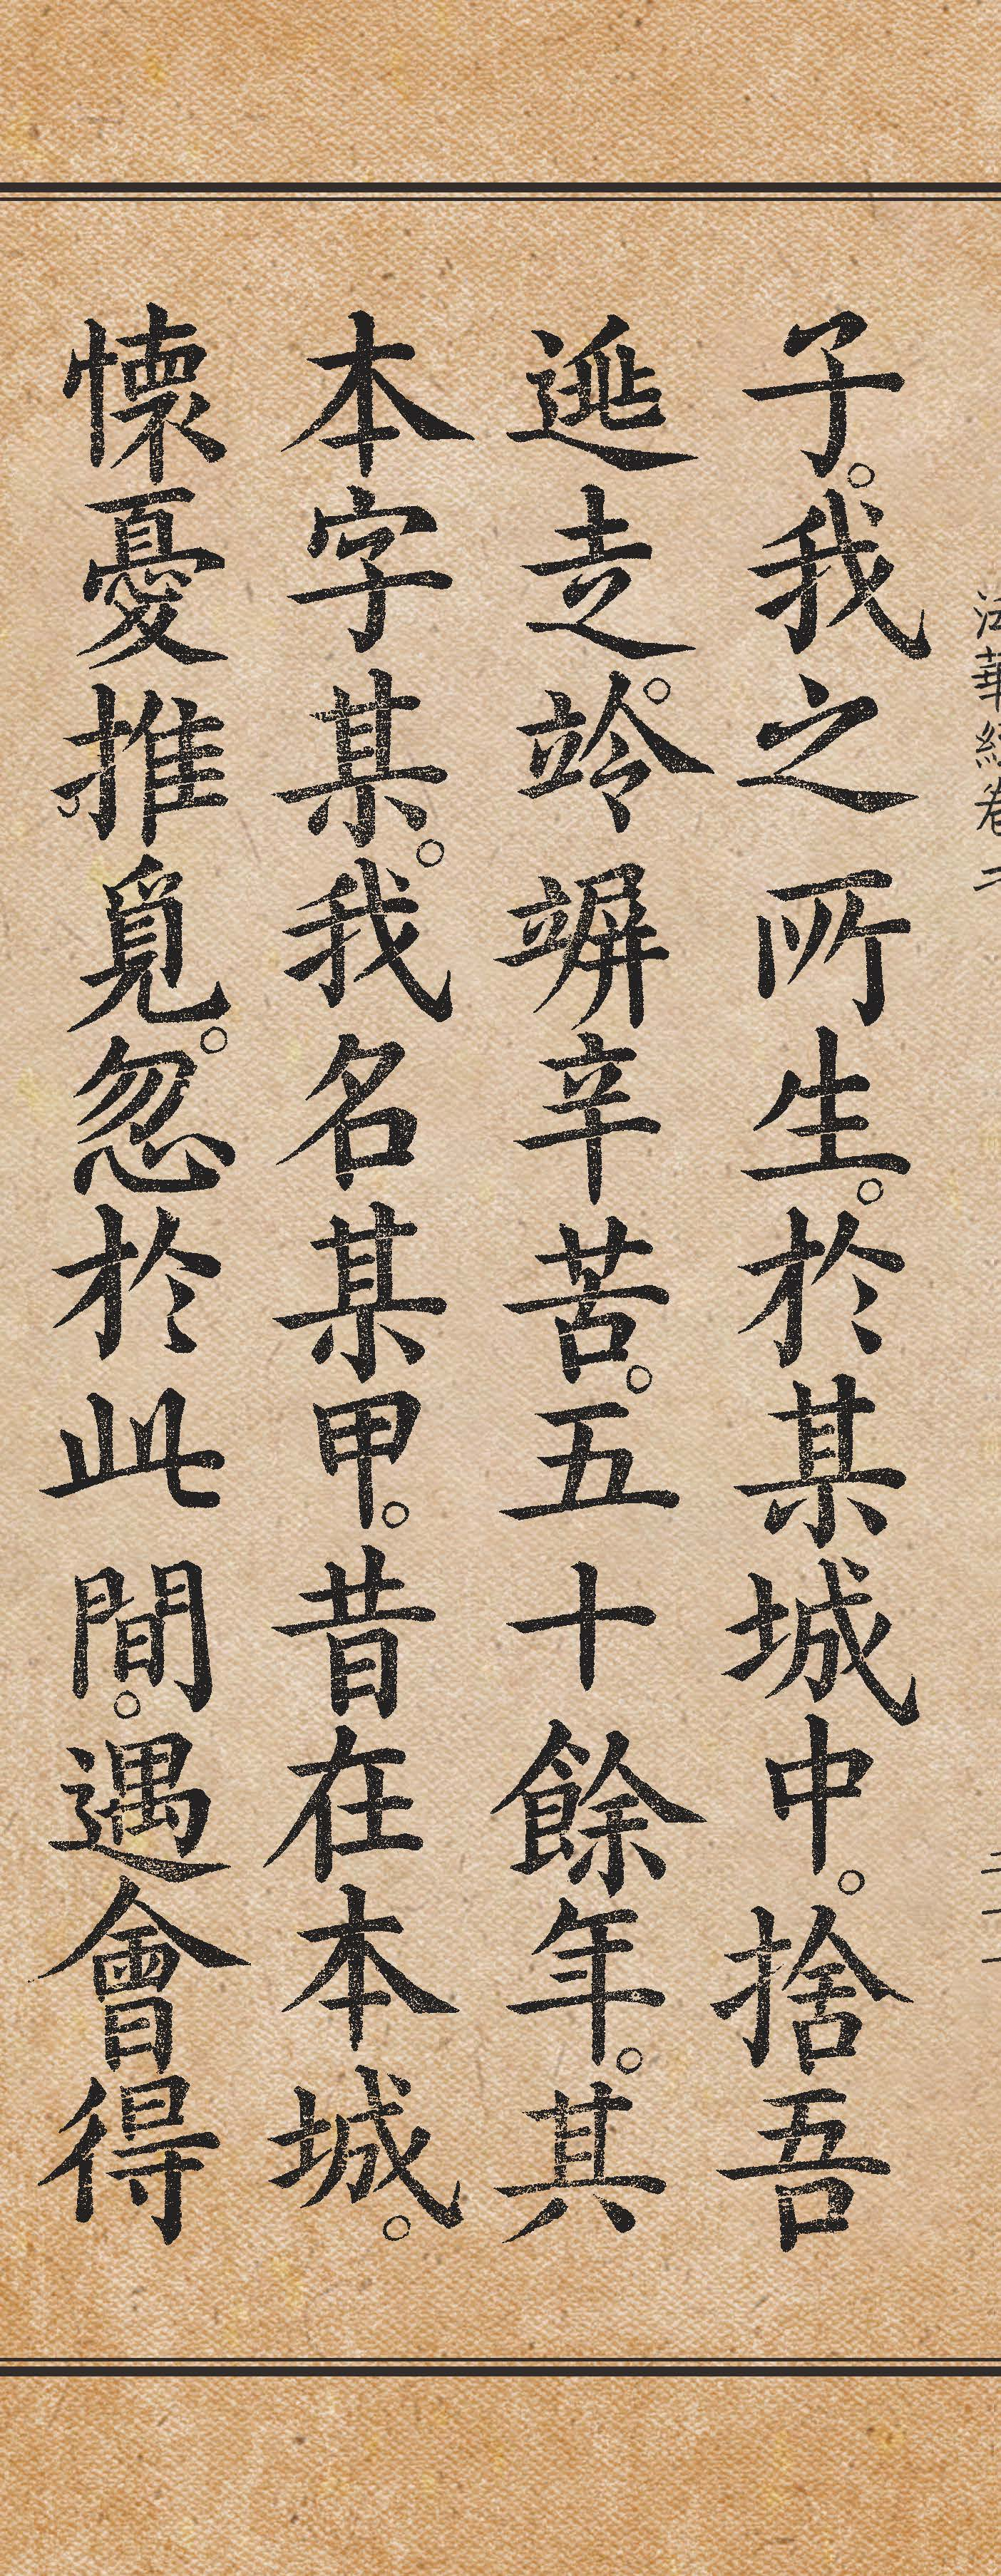 法華經卷二
子。我之所生。於某城中。捨吾
逃走。竛竮辛苦。五十餘年。其
本字某。我名某甲。昔在本城。
懷憂推覓。忽於此間。遇會得